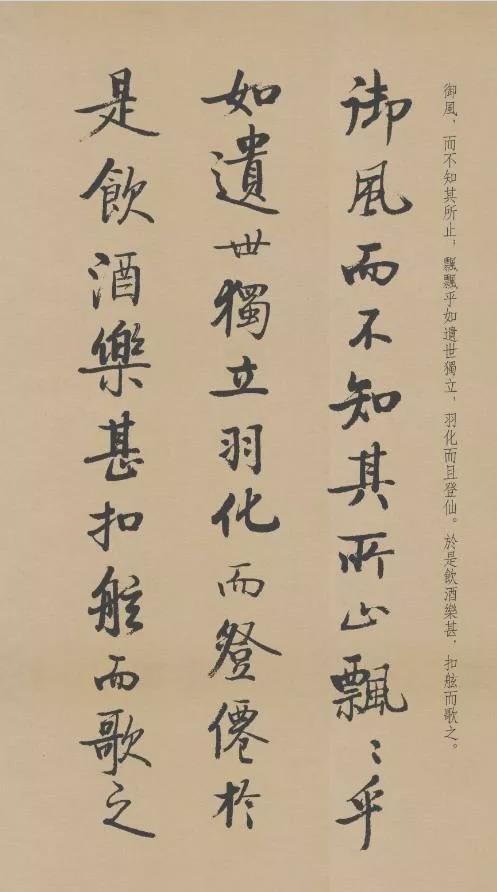 御風，而不知其所止；飄飄乎如遺世獨立，羽化而且登仙。於是飲酒樂甚，扣舷而歌之。
御風而不知其所止飄〻乎
如遺世獨立羽化而登僊於
是飲酒樂甚扣舷而歌之